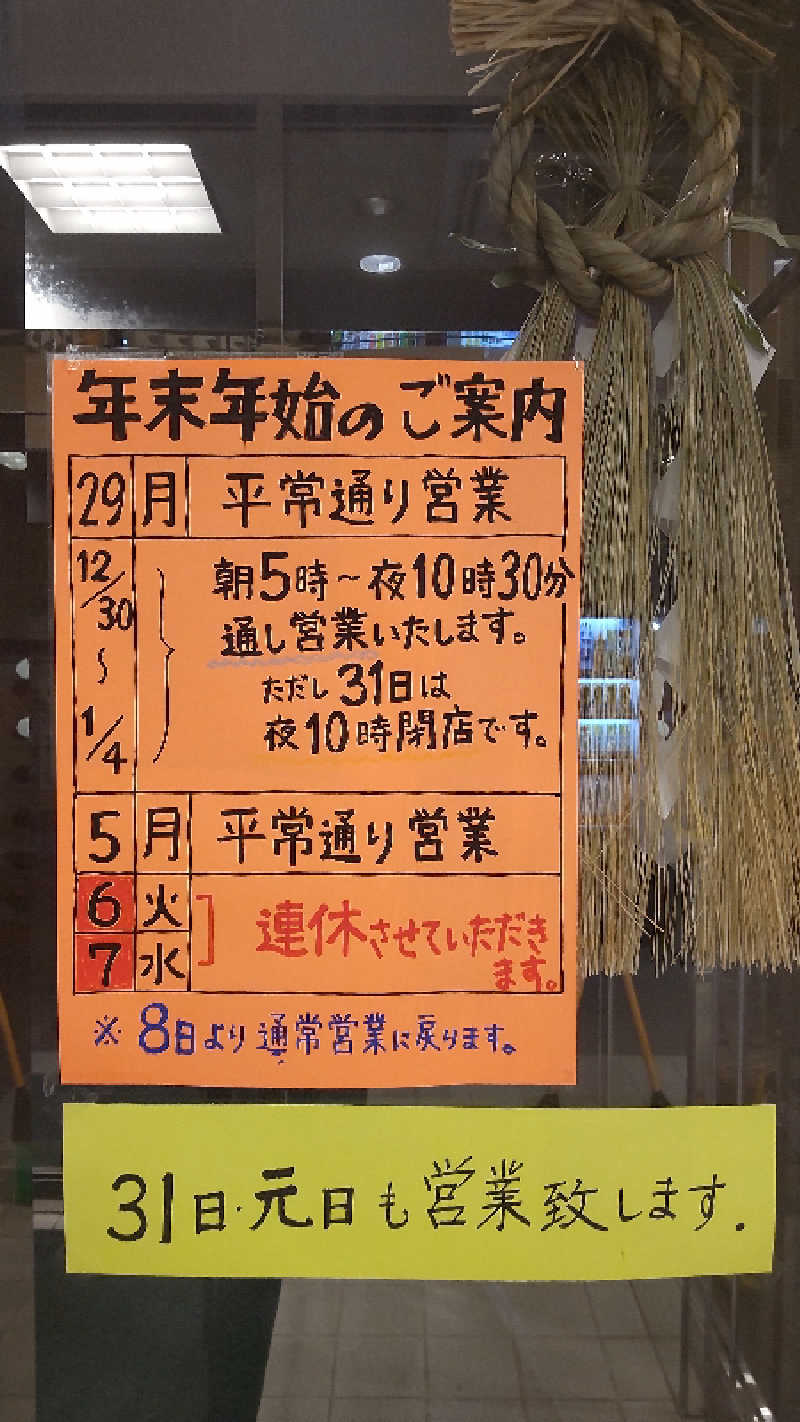 年末年始のご案内
29 月 平常通り営業
12/30 朝5時～夜10時30分
通し営業いたします。
～ ただし31日は
1/4 夜10時閉店です。
5 月 平常通り営業
6 火 連休させていただき
7 水 ます。
※ 8日より通常営業に戻ります。
31日・元日も営業致します.